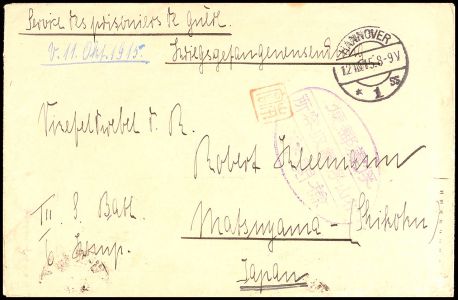 Service des prisonniers de guerre
v. 11. Okt. 1915. Kriegsgefangenensend
HANNOVER
8-9V
* 1 *
Vizefeldwebel d. R.
Robert Kleemann
III S. Batl.
6. Komp.
Matsuyama - (Shikoku)
Japan